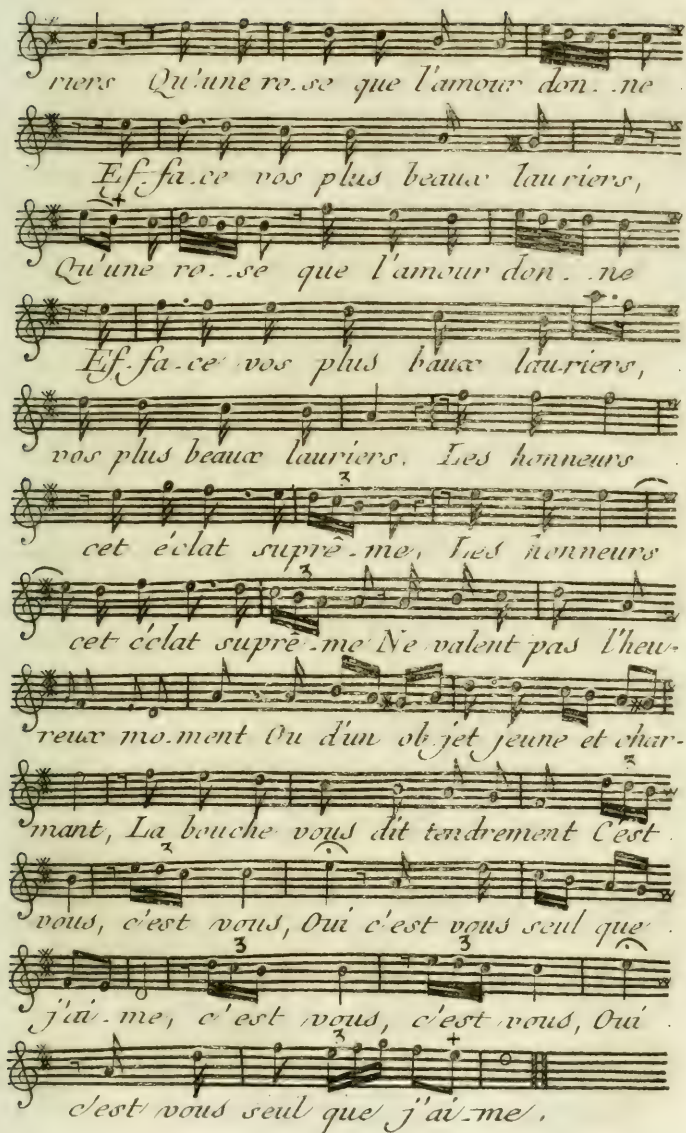 riers Qu'une ro..se que l'amour don...ne
Ef-fa.ce vos plus beaux lauriers,
Qu'une ro...se que l'amour don...ne
Ef-fa-ce vos plus baux lau-riers,
vos plus beaux lauriers. Les honneurs
cet éclat suprê-me, Les honneurs
cet éclat suprê-me Ne valent pas l'heu-
reux mo-ment Ou d'un ob-jet jeune et char-
mant, La bouche vous dit tendrement C'est
vous, c'est vous, Oui c'est vous seul que
j'ai-me, c'est vous, c'est vous, Oui
c'est vous seul que j'ai-me.